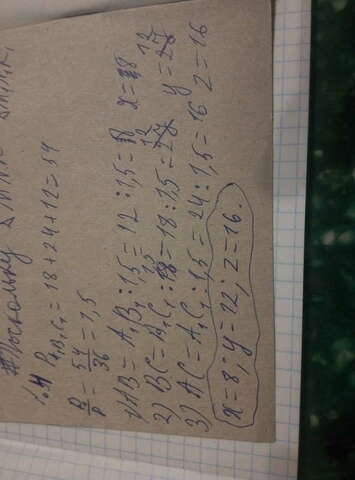 Поскольку
1.4 P A₁B₁C₁ = 18+24+12=54
P₁/P = 54/36 = 1,5
1) AB = A₁B₁:1,5 = 12:1,5=8 x=8
2) BC = B₁C₁:1,5 = 18:1,5=12 y=12
3) AC = A₁C₁:1,5 = 24:1,5=16 z=16
x=8; y=12; z=16.